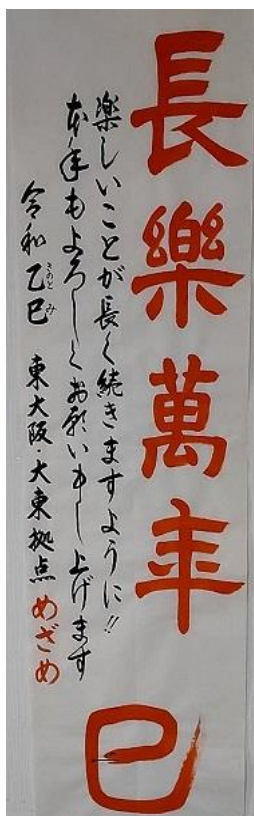 長樂萬年
巳
楽しいことが長く続きますように!!
本年もよろしくお願いもし上げます
令和乙巳 東大阪・大東拠点 めざめ
きのと み